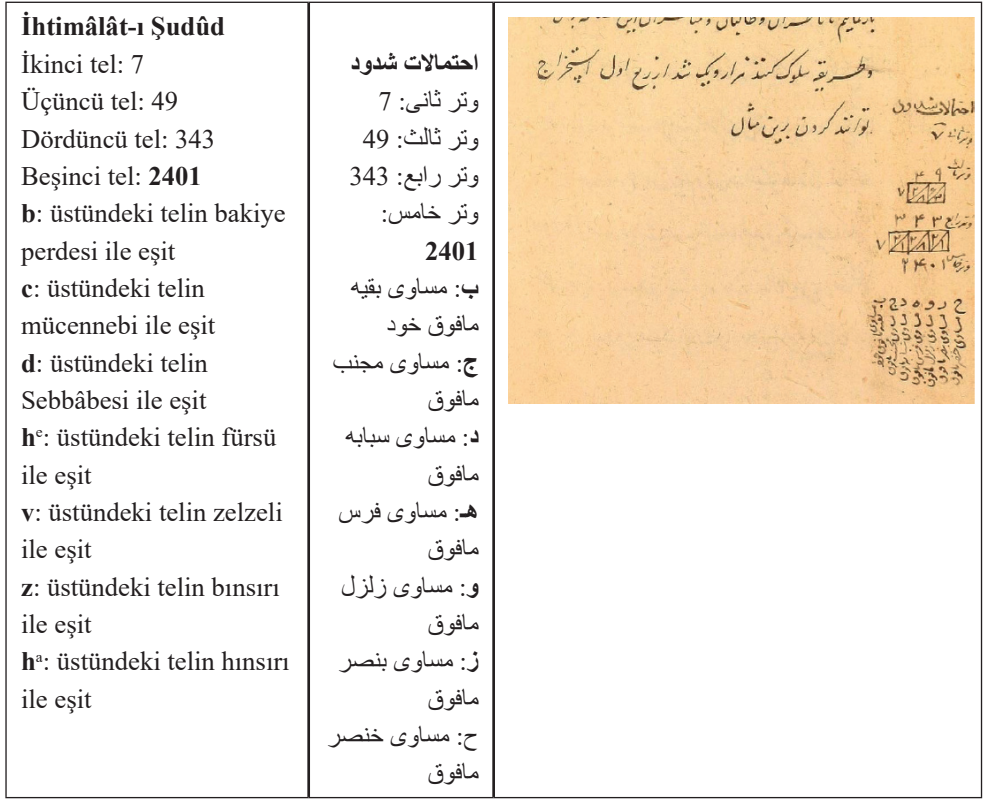 İhtimâlât-ı Şudûd
İkinci tel: 7
Üçüncü tel: 49
Dördüncü tel: 343
Beşinci tel: 2401
b: üstündeki telin bakiye
perdesi ile eşit
c: üstündeki telin
mücennebi ile eşit
d: üstündeki telin
Sebbâbesi ile eşit
hᵉ: üstündeki telin fürsü
ile eşit
v: üstündeki telin zelzeli
ile eşit
z: üstündeki telin bınsırı
ile eşit
hᵃ: üstündeki telin hınsırı
ile eşit
احتمالات شدود
وتر ثانی: 7
وتر ثالث: 49
وتر رابع: 343
وتر خامس:
2401
ب: مساوی بقیه
مافوق خود
ج: مساوی مجنب
مافوق
د: مساوی سبابه
مافوق
هـ: مساوی فرس
مافوق
و: مساوی زلزل
مافوق
ز: مساوی بنصر
مافوق
ح: مساوی خنصر
مافوق
و طریقه سلوک کنند هزار و یک شد از ربع اول استخراج
توانند کردن برین مثال
احتمالات شدود
وتر ثانی ۷
وتر ثالث ۴۹
۷
وتر رابع ۳۴۳
۷
وتر خامس ۲۴۰۱